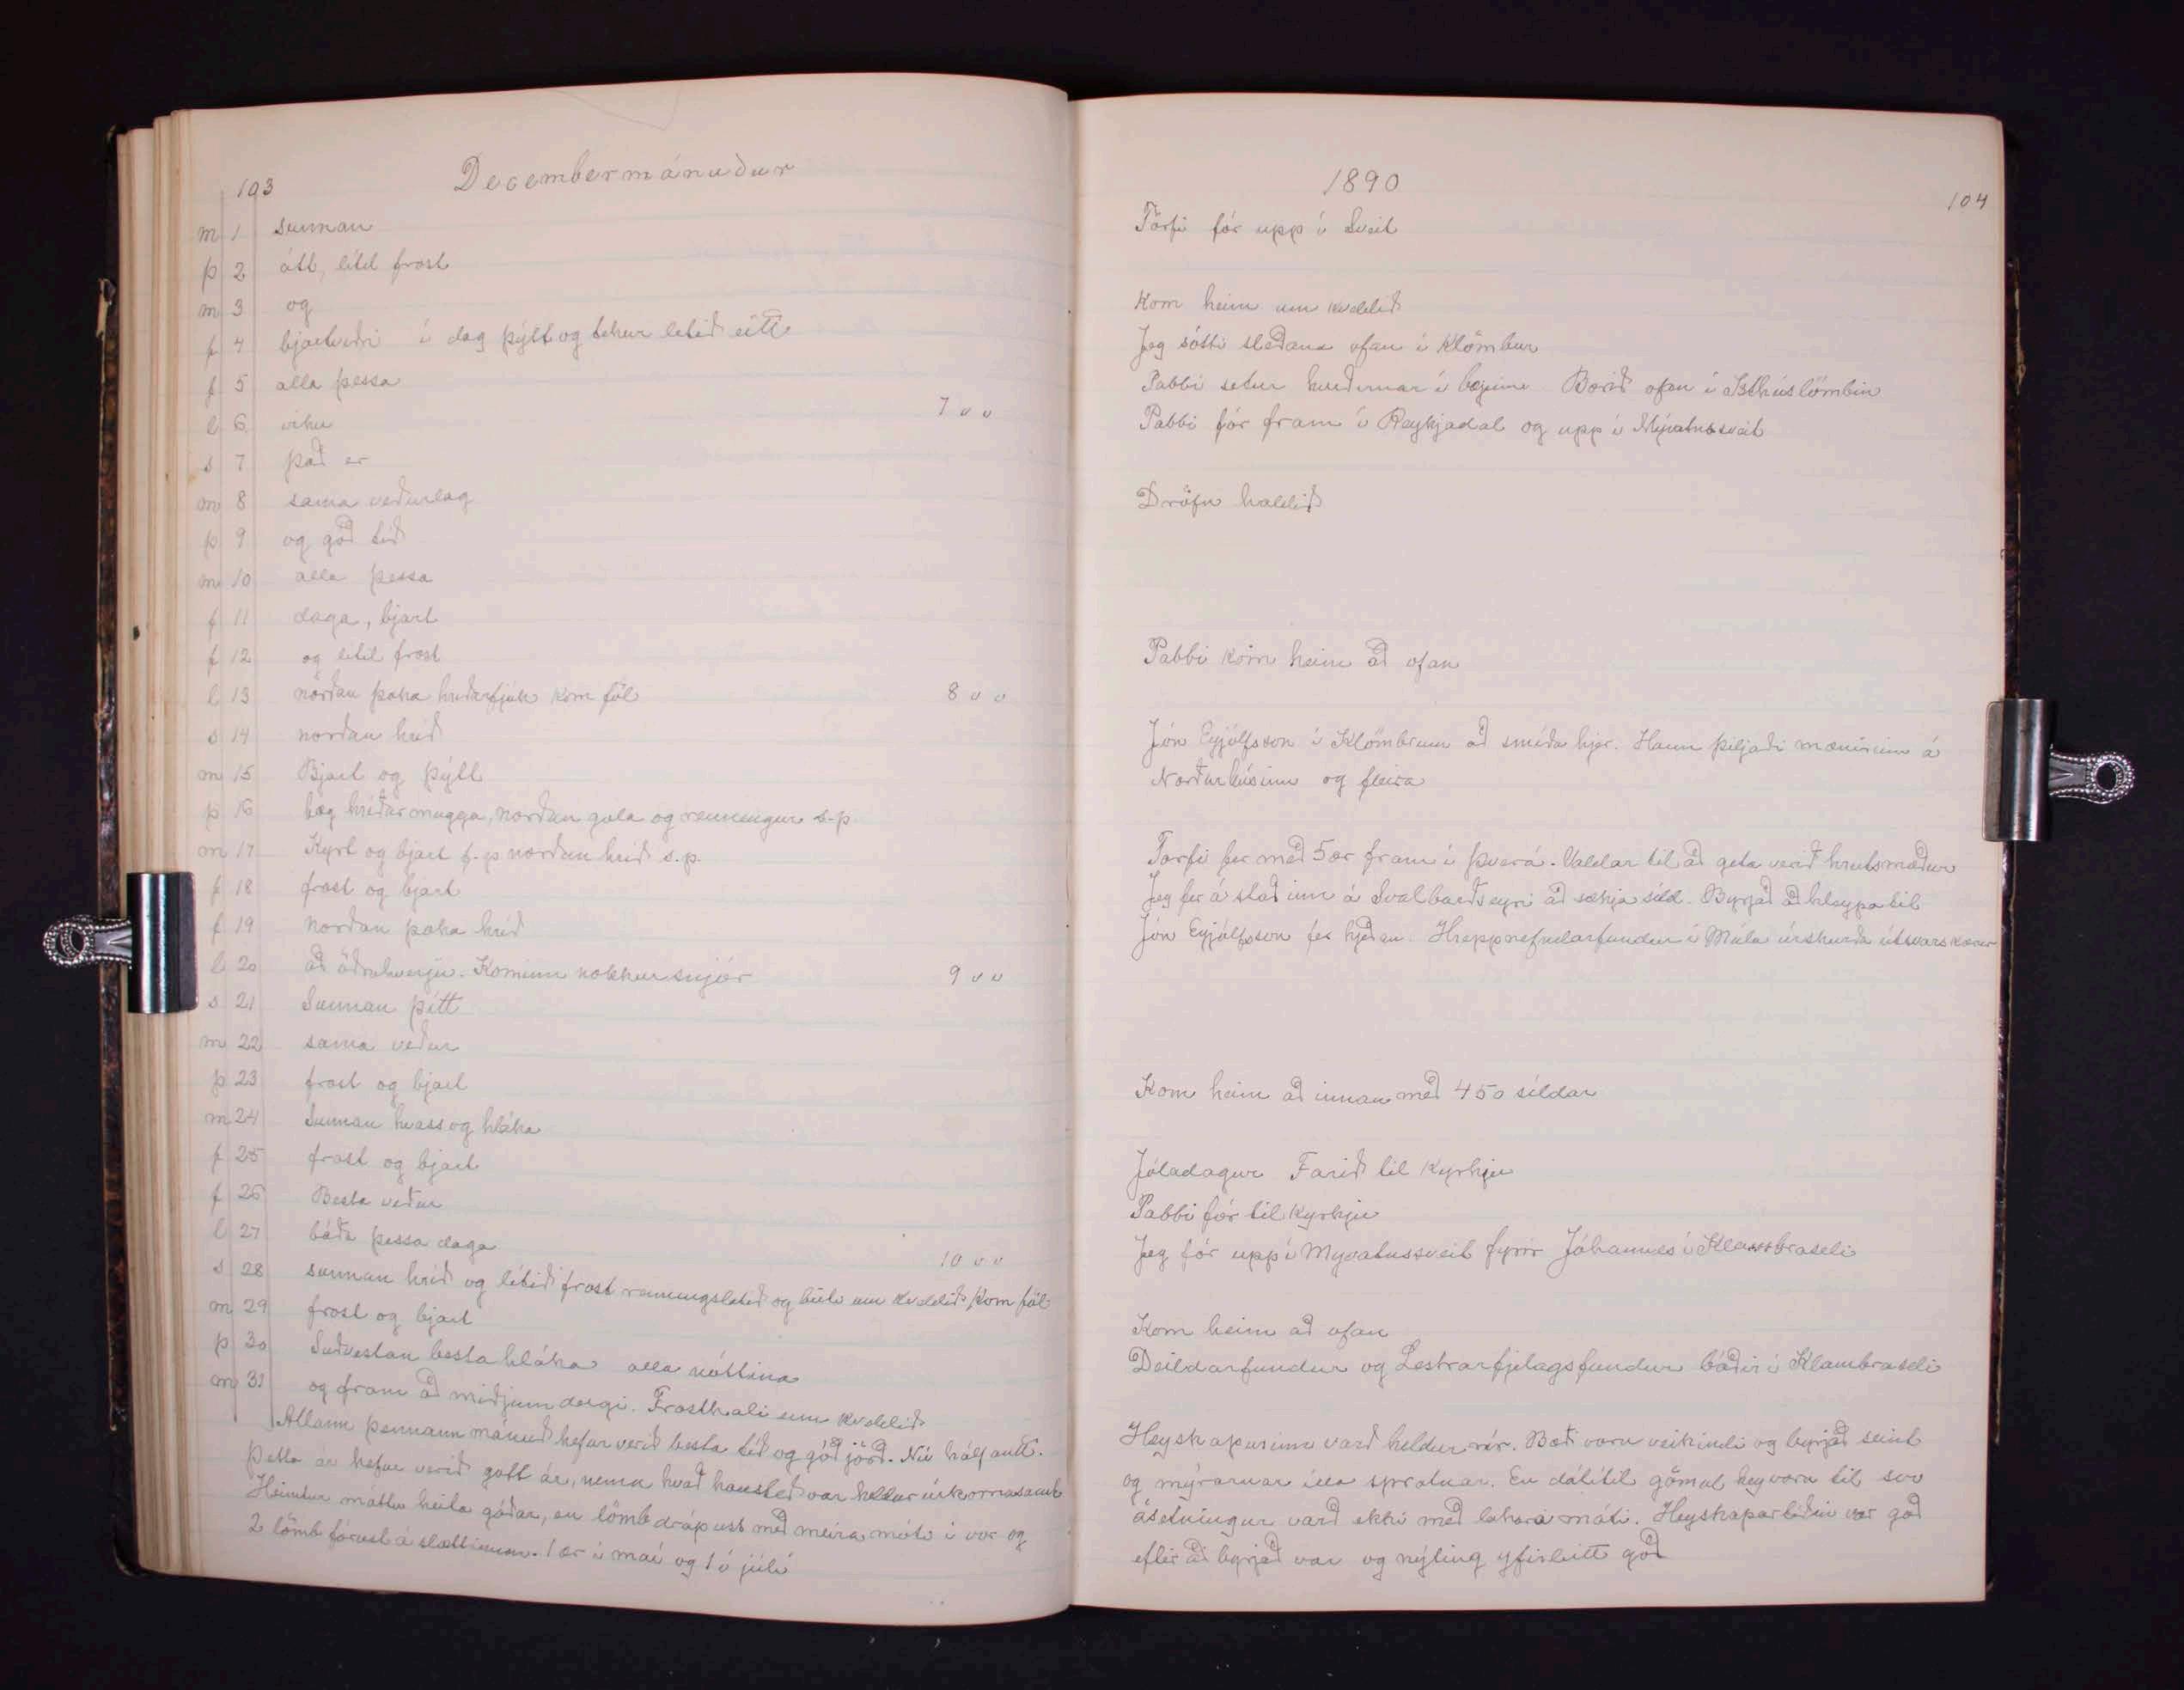 103
Decembermánuður
m 1 sunnan
þ 2 átt, lítið frost
m 3 og
f 4 bjartviðri í dag þýtt og tekur litið eitt
f 5 alla þessa
l 6 viku 7 v v
s 7 það er
m 8 sama veðurlag
þ 9 og góð tíð
m 10 alla þessa
f 11 daga, bjart
f 12 og litil frost
l 13 norðan þoka hríðarfjúk kom föl 8 v v
s 14 norðan hríð
m 15 Bjart og þýtt
þ 16 hæg hríðarmugga, norðan gola og renningur s-p
m 17 Kyrt og bjart f-p norðan hríð s.p.
f 18 frost og bjart
f 19 norðan þoka hríð
l 20 að öðruhverju. Kominn nokkur snjór 9 v v
s 21 Sunnan þítt
m 22 sama veður
þ 23 frost og bjart
m 24 Sunnan hvass og hláka
f 25 frost og bjart
f 26 Besta veður
l 27 báða þessa daga 10 v v
s 28 sunnan hríð og lítið frost um kveldið kom föl
m 29 frost og bjart
þ 30 Suðvestan besta hláka alla nóttina
m 31 og fram að miðjum degi. Frostkali um kveldið
Allann þennann mánuð hefur verið besta tíð og góð jörð. Nú hálf auð.
Þetta ár hefur verið gott ár, nema hvað haustið var heldur úrkomasamt
Heimtur máttu heita góðar, en lömb drápust með meira móti í vor og
2 lömb fórust á slættinum. 1 ær í maí og 1 í júlí
1890
104
Törfi fór upp í Sveit
Kom heim um kveldið
Jeg sótti sleðana ofan í Klömbur
Pabbi setur hurðirnar í bæjinn Borið ofan í Bthúslömbin
Pabbi fór fram í Reykjadal og upp í Mývatnssveit
Dröfn haldið
Pabbi kom heim að ofan
Jón Eyjólfsson í Klömbrum að smíða hjer. Hann þiljaði mænirinn á
Norðurhúsinu og fleira
Torfi fer með 5 ær fram í Þverá. Valdar til að geta verið hrútsmæður
Jeg fer á stað inn á Svalbarðseyri að sækja síld. Byrjað að hleypa til
Jón Eyjólfsson fer hjeðan. Hreppnefndarfundur í Múla úrskurða útsvarskærur
Kom heim að innan með 450 síldar
Jóladagur Farið til Kyrkju
Pabbi fór til Kyrkju
Jeg fór upp í Myvatnssveit fyrir Jóhannes í Klambraseli
Kom heim að ofan
Deildarfundur og Lestrarfjelagsfundur báðir í Klambraseli
Heyskapurinn varð heldur rír. Bæði voru veikindi og byrjað seint
og mýrarnar illa sprotnar. En dálítil gömul hey voru til svo
ásetningur varð ekki með lakara móti. Heyskapartíðin var góð
eftir að byrjað var og nýting yfirleitt góð